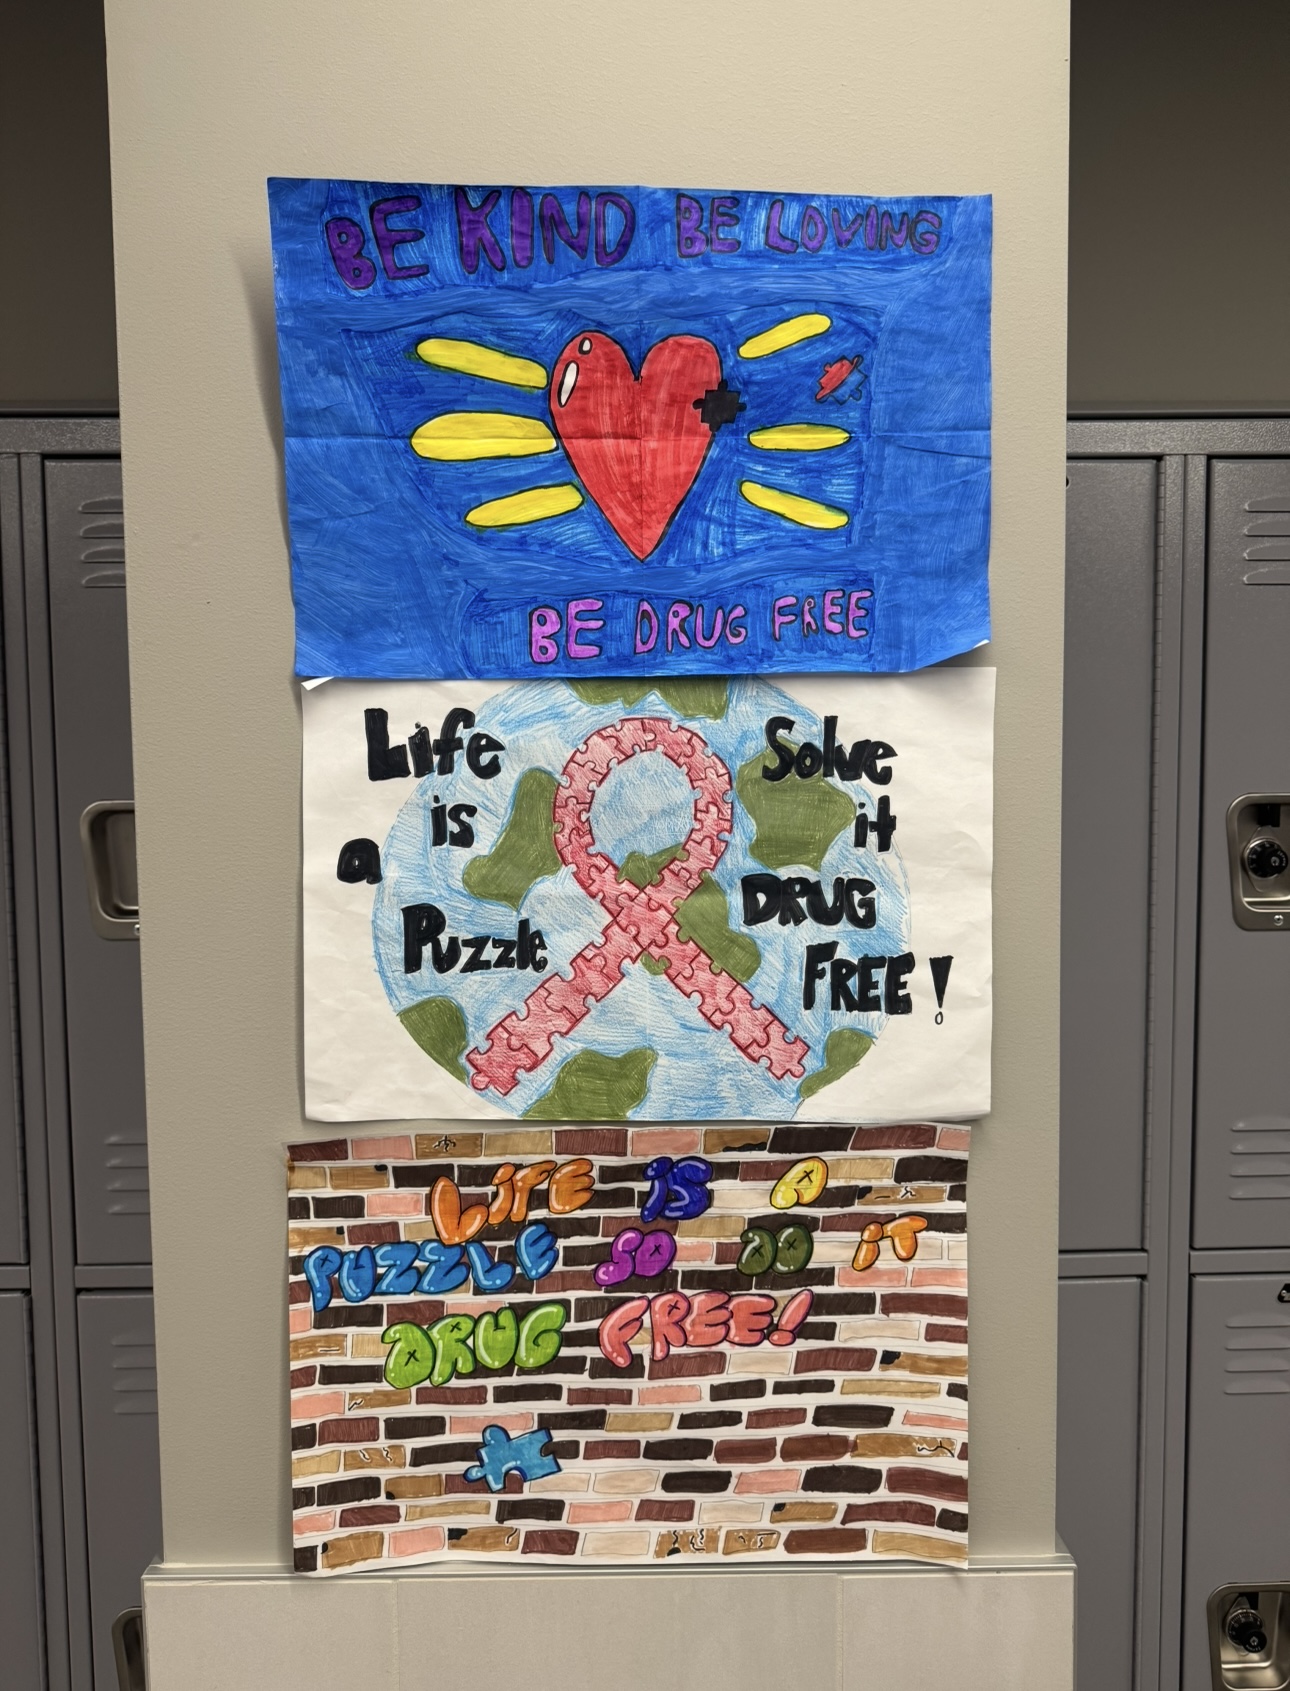 BE KIND BE LOVING
BE DRUG FREE
Life
is
a
Puzzle
Solve
it
DRUG
FREE!
LIFE IS A
PUZZLE SO DO IT
DRUG FREE!